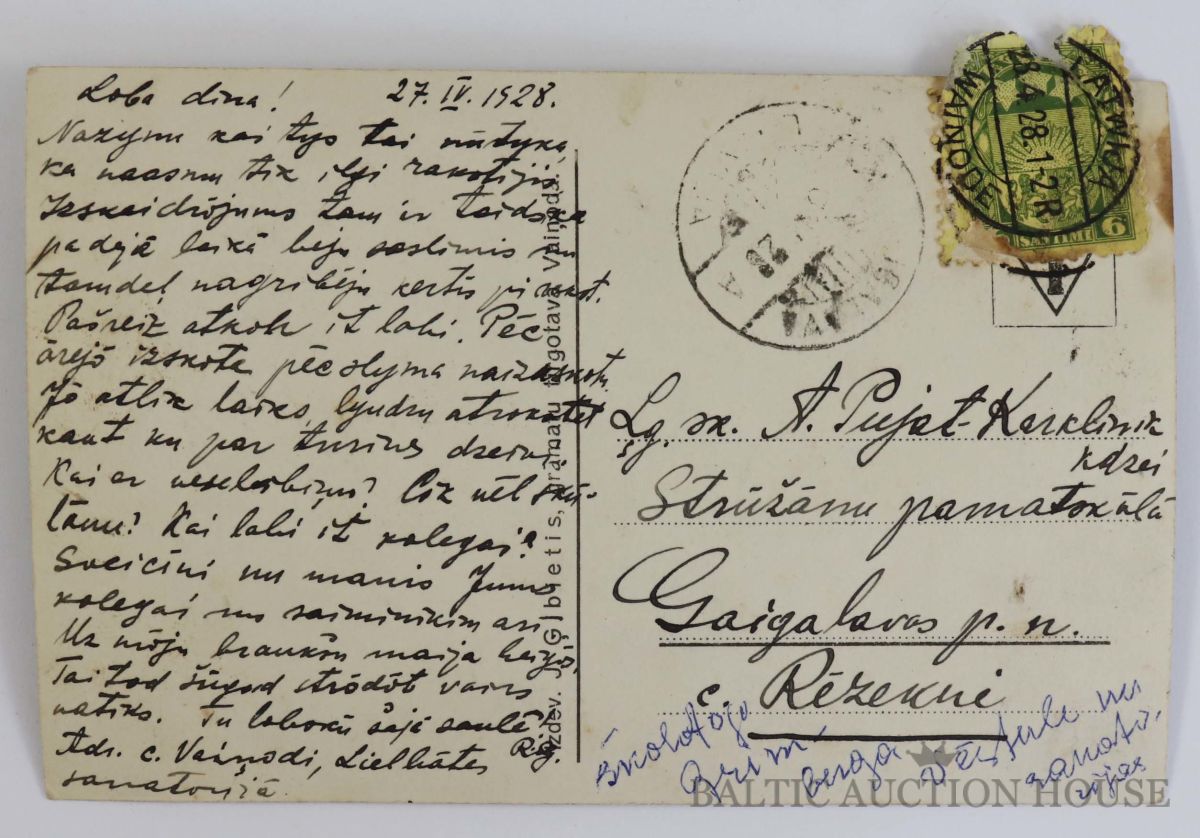 Loba dina! 27. IV. 1928.
Nazynu kai tys tai nūtyka,
ka naasmu tik ilgi rakstijis.
Izskaidrōjums tam ir taids, ka
padejā laikā beju saslimis un
tamdeļ nagribēju kertis pi rakst.
Pašreiz atkol it labi. Pēc
ārejō izskota pēc slyma naizaskota.
Jō atlik laiks lyudzu atrokstit
kaut ku par turines dzeivi.
Kai ar veseleibim? Cik vēl skū-
lānu? Kai labi it kolegai?
Sveicini nu manis Jums
kolegai un saiminikim ari
Uz mōju braukšu maija beigōs,
Tai tad šūgad strōdōt vairs
natiks. Tu labokū šajā saulē!
Adr. c. Vaiņodi, Lielbātes Rig.
sanatorijā
Izdev. J. Ģībietis, grāmatu tirgotava Vaiņodē.
LATWIJA
28.4.28.1-2R
WAINODE
SANTIMI 6
LATVIJA
28
Lg. sk. A. Pujat-Karklinik
kdzei
Strūžānu pamatskōlā
Gaigalavas p. n.
c. Rēzekni
Skolotāja
Brim-
berga
vēstule nu
sanato-
rijas
BALTIC AUCTION HOUSE